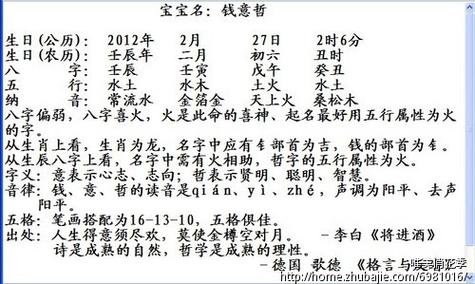 宝宝名：钱意哲
生日(公历)： 2012年 2月 27日 2时6分
生日(农历)： 壬辰年 二月 初六 丑时
八 字： 壬辰 壬寅 戊午 癸丑
五 行： 水土 水木 土火 水土
纳 音： 常流水 金箔金 天上火 桑松木
八字偏弱，八字喜火，火是此命的喜神、起名最好用五行属性为火
的字。
从生肖上看，生肖为龙，名字中应有钅部首为吉，钱的部首为钅。
从生辰八字上看，名字中需有火相助，哲字的五行属性为火。
字义：意表示心志、志向；哲表示贤明、聪明、智慧。
音律：钱、意、哲的读音是qián、yì、zhé，声调为阳平、去声
阳平。
五格：笔画搭配为16-13-10，五格俱佳。
出处：人生得意须尽欢，莫使金樽空对月。 -李白《将进酒》
诗是成熟的自然，哲学是成熟的理性。
-德国 歌德 《格言与
http://home.zhubajie.com/6981016/